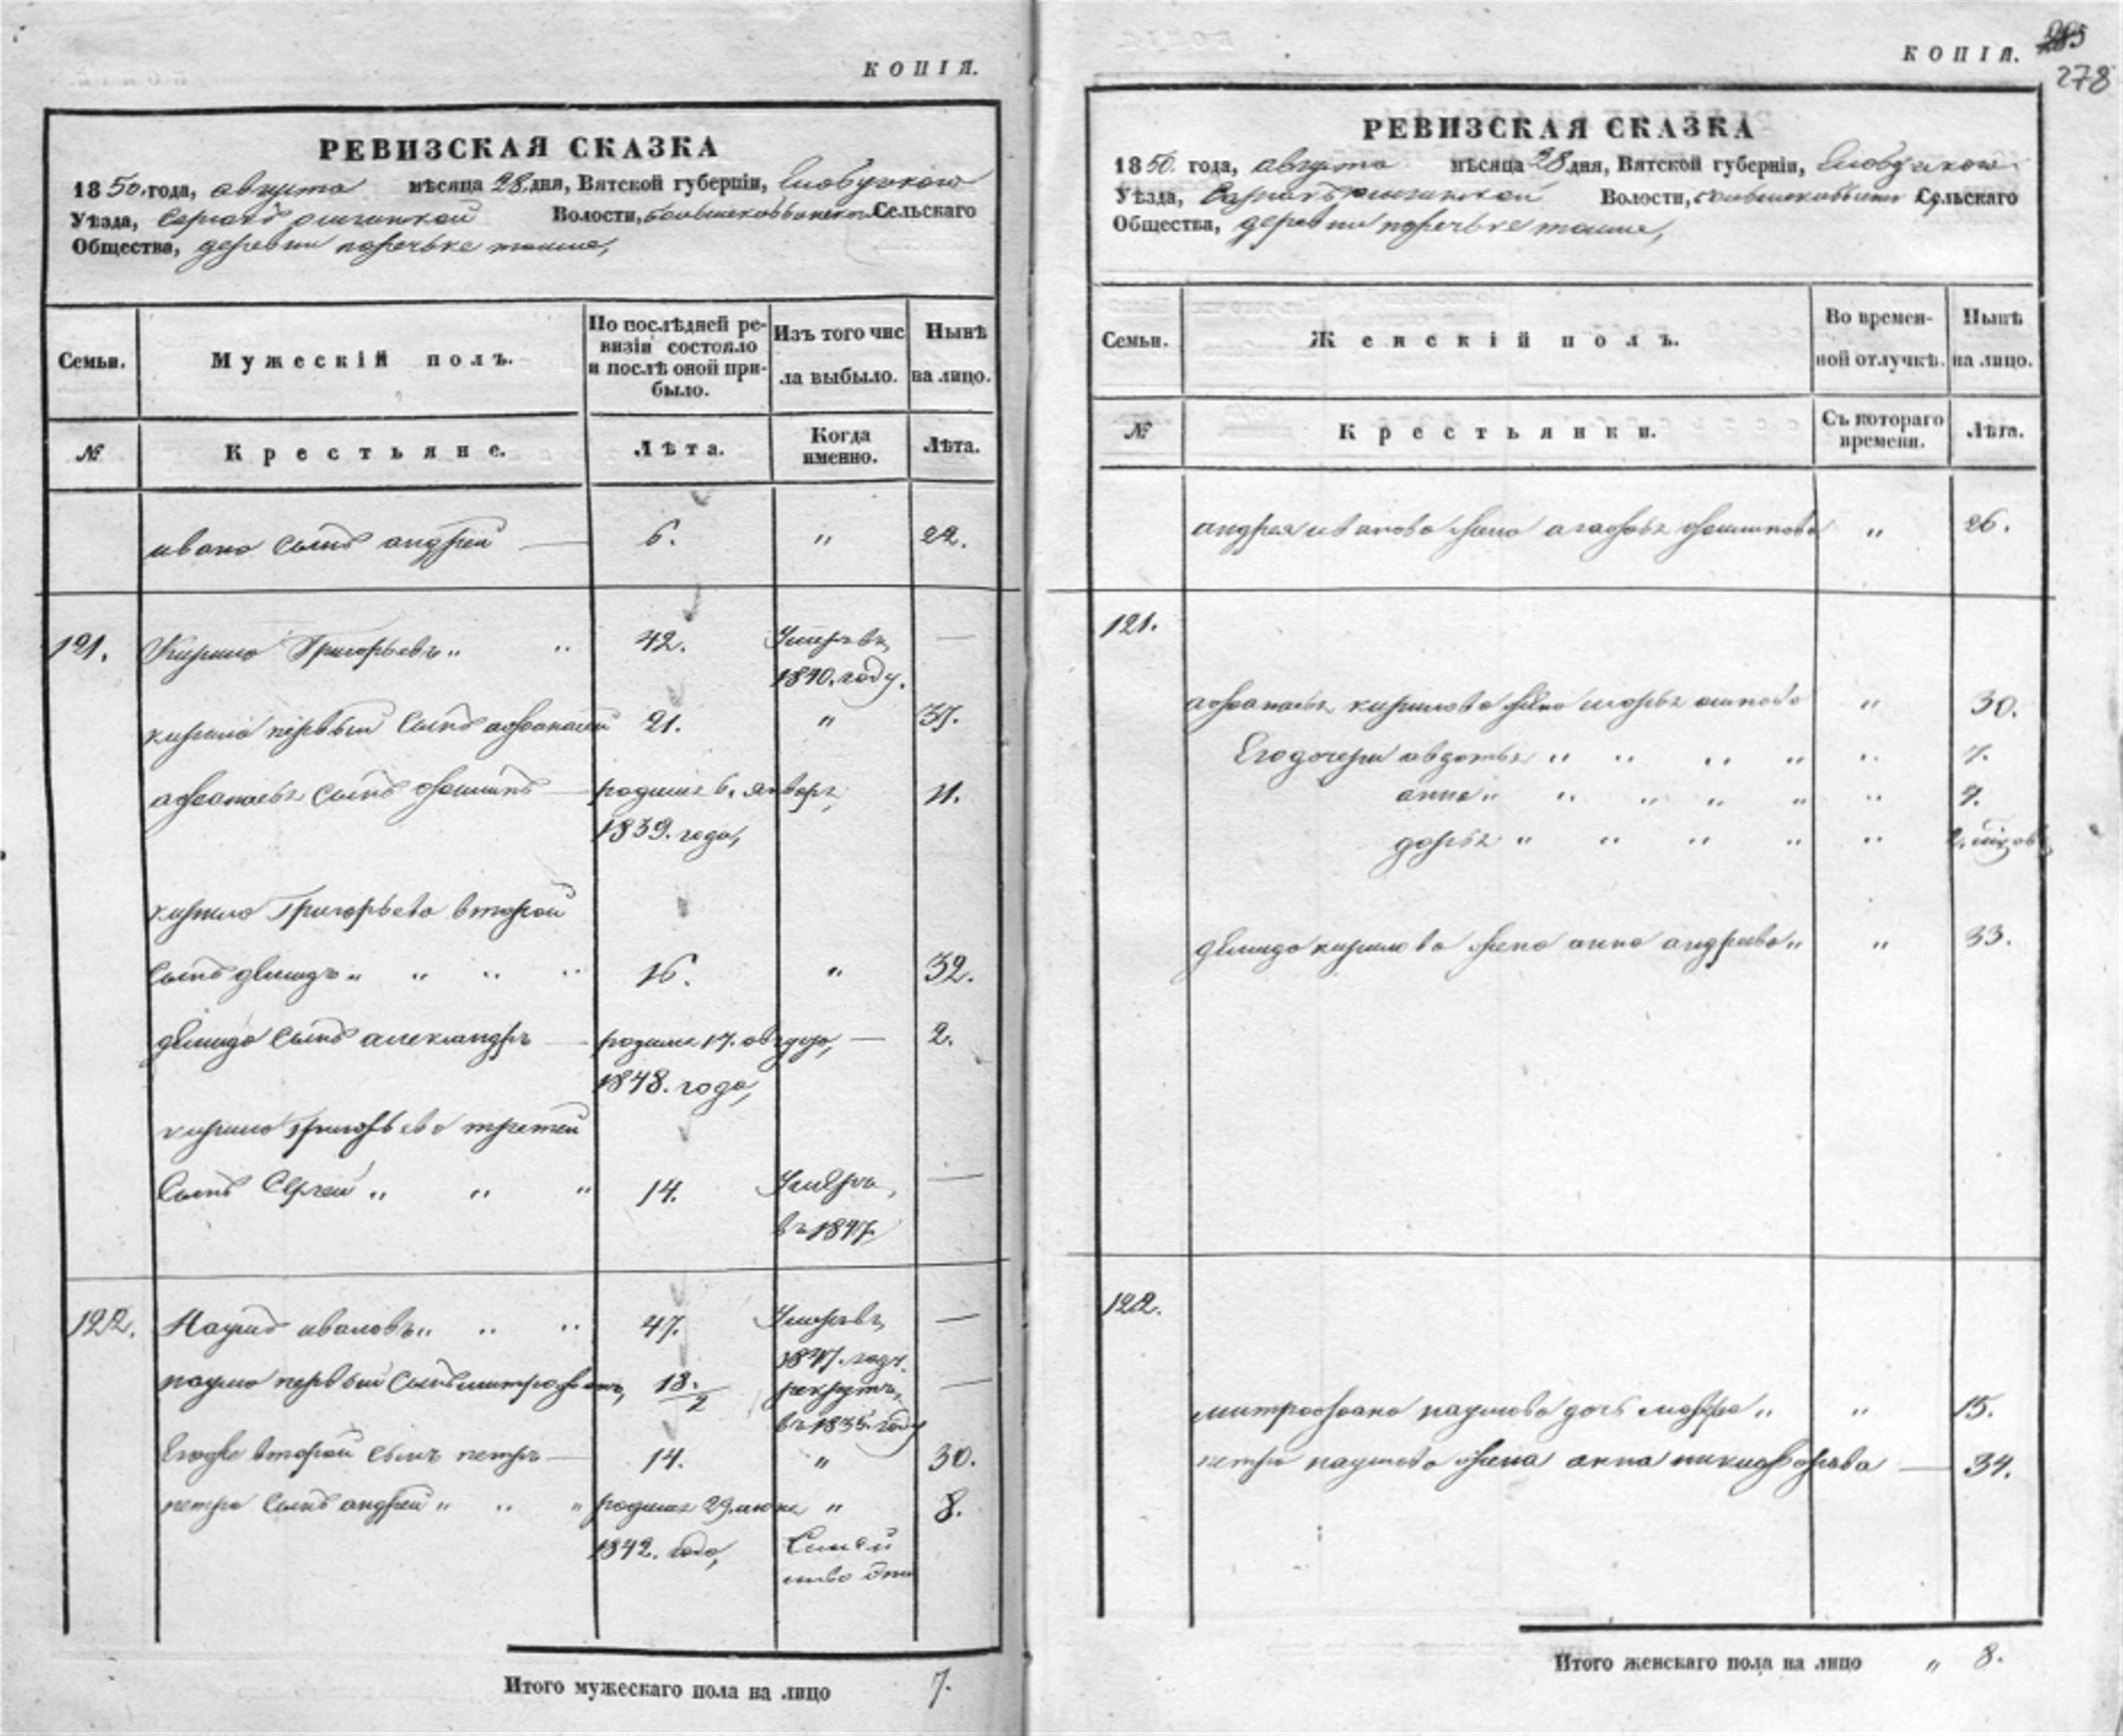 КОПІЯ.
РЕВИЗСКАЯ СКАЗКА
1850. года, августа мѣсяца 28. дня, Вятской губерніи,
Уѣзда, Волости, Сельскаго
Общества, деревни
Семьи.
Мужескій полъ.
По послѣдней ре-
визіи состояло
и послѣ оной при-
было.
Изъ того чис
ла выбыло.
Нынѣ
на лицо.
№
Крестьяне.
Лѣта.
Когда
именно.
Лѣта.
ивана сынъ андрей 6. „ 22.
121. Кирило Григорьевъ „ „ 42. Умеръ въ —
1840. году.
кирила первый сынъ афонасей 21. „ 37.
афонасья сынъ родился 6. января 11.
1839. года,
кирила Григорьева второй
сынъ демидъ „ „ „ „ 16. „ 32.
демида сынъ александръ — родился 17. — 2.
1848. года,
кирила Григорьева третей
сынъ Сергей „ „ „ 14. Умеръ —
въ 1847.
122. Наумъ ивановъ „ „ „ 47. Умеръ въ —
1847. году.
наума первый сынъ митрофанъ, 18./2 рекрутъ —
въ 1835. году
Егоже второй сынъ петръ — 14. „ 30.
петра сынъ андрей „ „ „ родился 29. июня „ 8.
1842. года,
Итого мужескаго пола на лицо 7.
КОПІЯ. 285
278
РЕВИЗСКАЯ СКАЗКА
1850. года, августа мѣсяца 28 дня, Вятской губерніи,
Уѣзда, Волости, Сельскаго
Общества, деревни
Семьи.
Женскій полъ.
Во времен-
ной отлучкѣ.
Нынѣ
на лицо.
№
Крестьянки.
Съ котораго
времени.
Лѣта.
андрея иванова жена агафья „ 26.
121.
афонасья кирилова жена марья „ 30.
Егодочери авдотья „ „ „ „ „ 7.
анна „ „ „ „ „ „
дарья „ „ „ „ „
демида кирилова жена анна андреева „ „ 33.
122.
митрофана наумова дочь „ „ 15.
петра наумова жена анна никифорова — 34.
Итого женскаго пола на лицо „ 8.